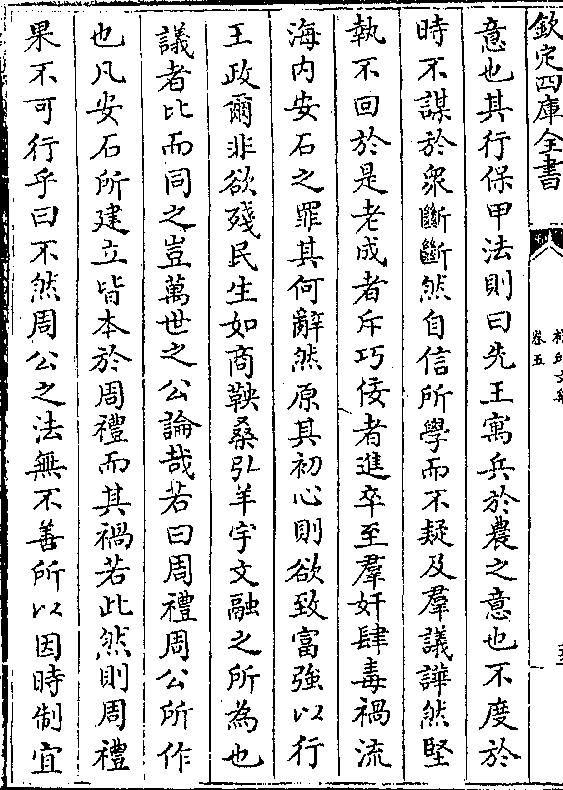 欽定四庫全書
卷五
意也其行保甲法則曰先王寓兵於農之意也不度於
時不謀於衆斷斷然自信所學而不疑及羣議譁然堅
執不回於是老成者斥巧佞者進卒至羣奸肆毒禍流
海内安石之罪其何辭然原其初心則欲致富強以行
王政爾非欲殘民生如商鞅桑弘羊宇文融之所為也
議者比而同之豈萬世之公論哉若曰周禮周公所作
也凡安石所建立皆本於周禮而其禍若此然則周禮
果不可行乎曰不然周公之法無不善所以因時制宜